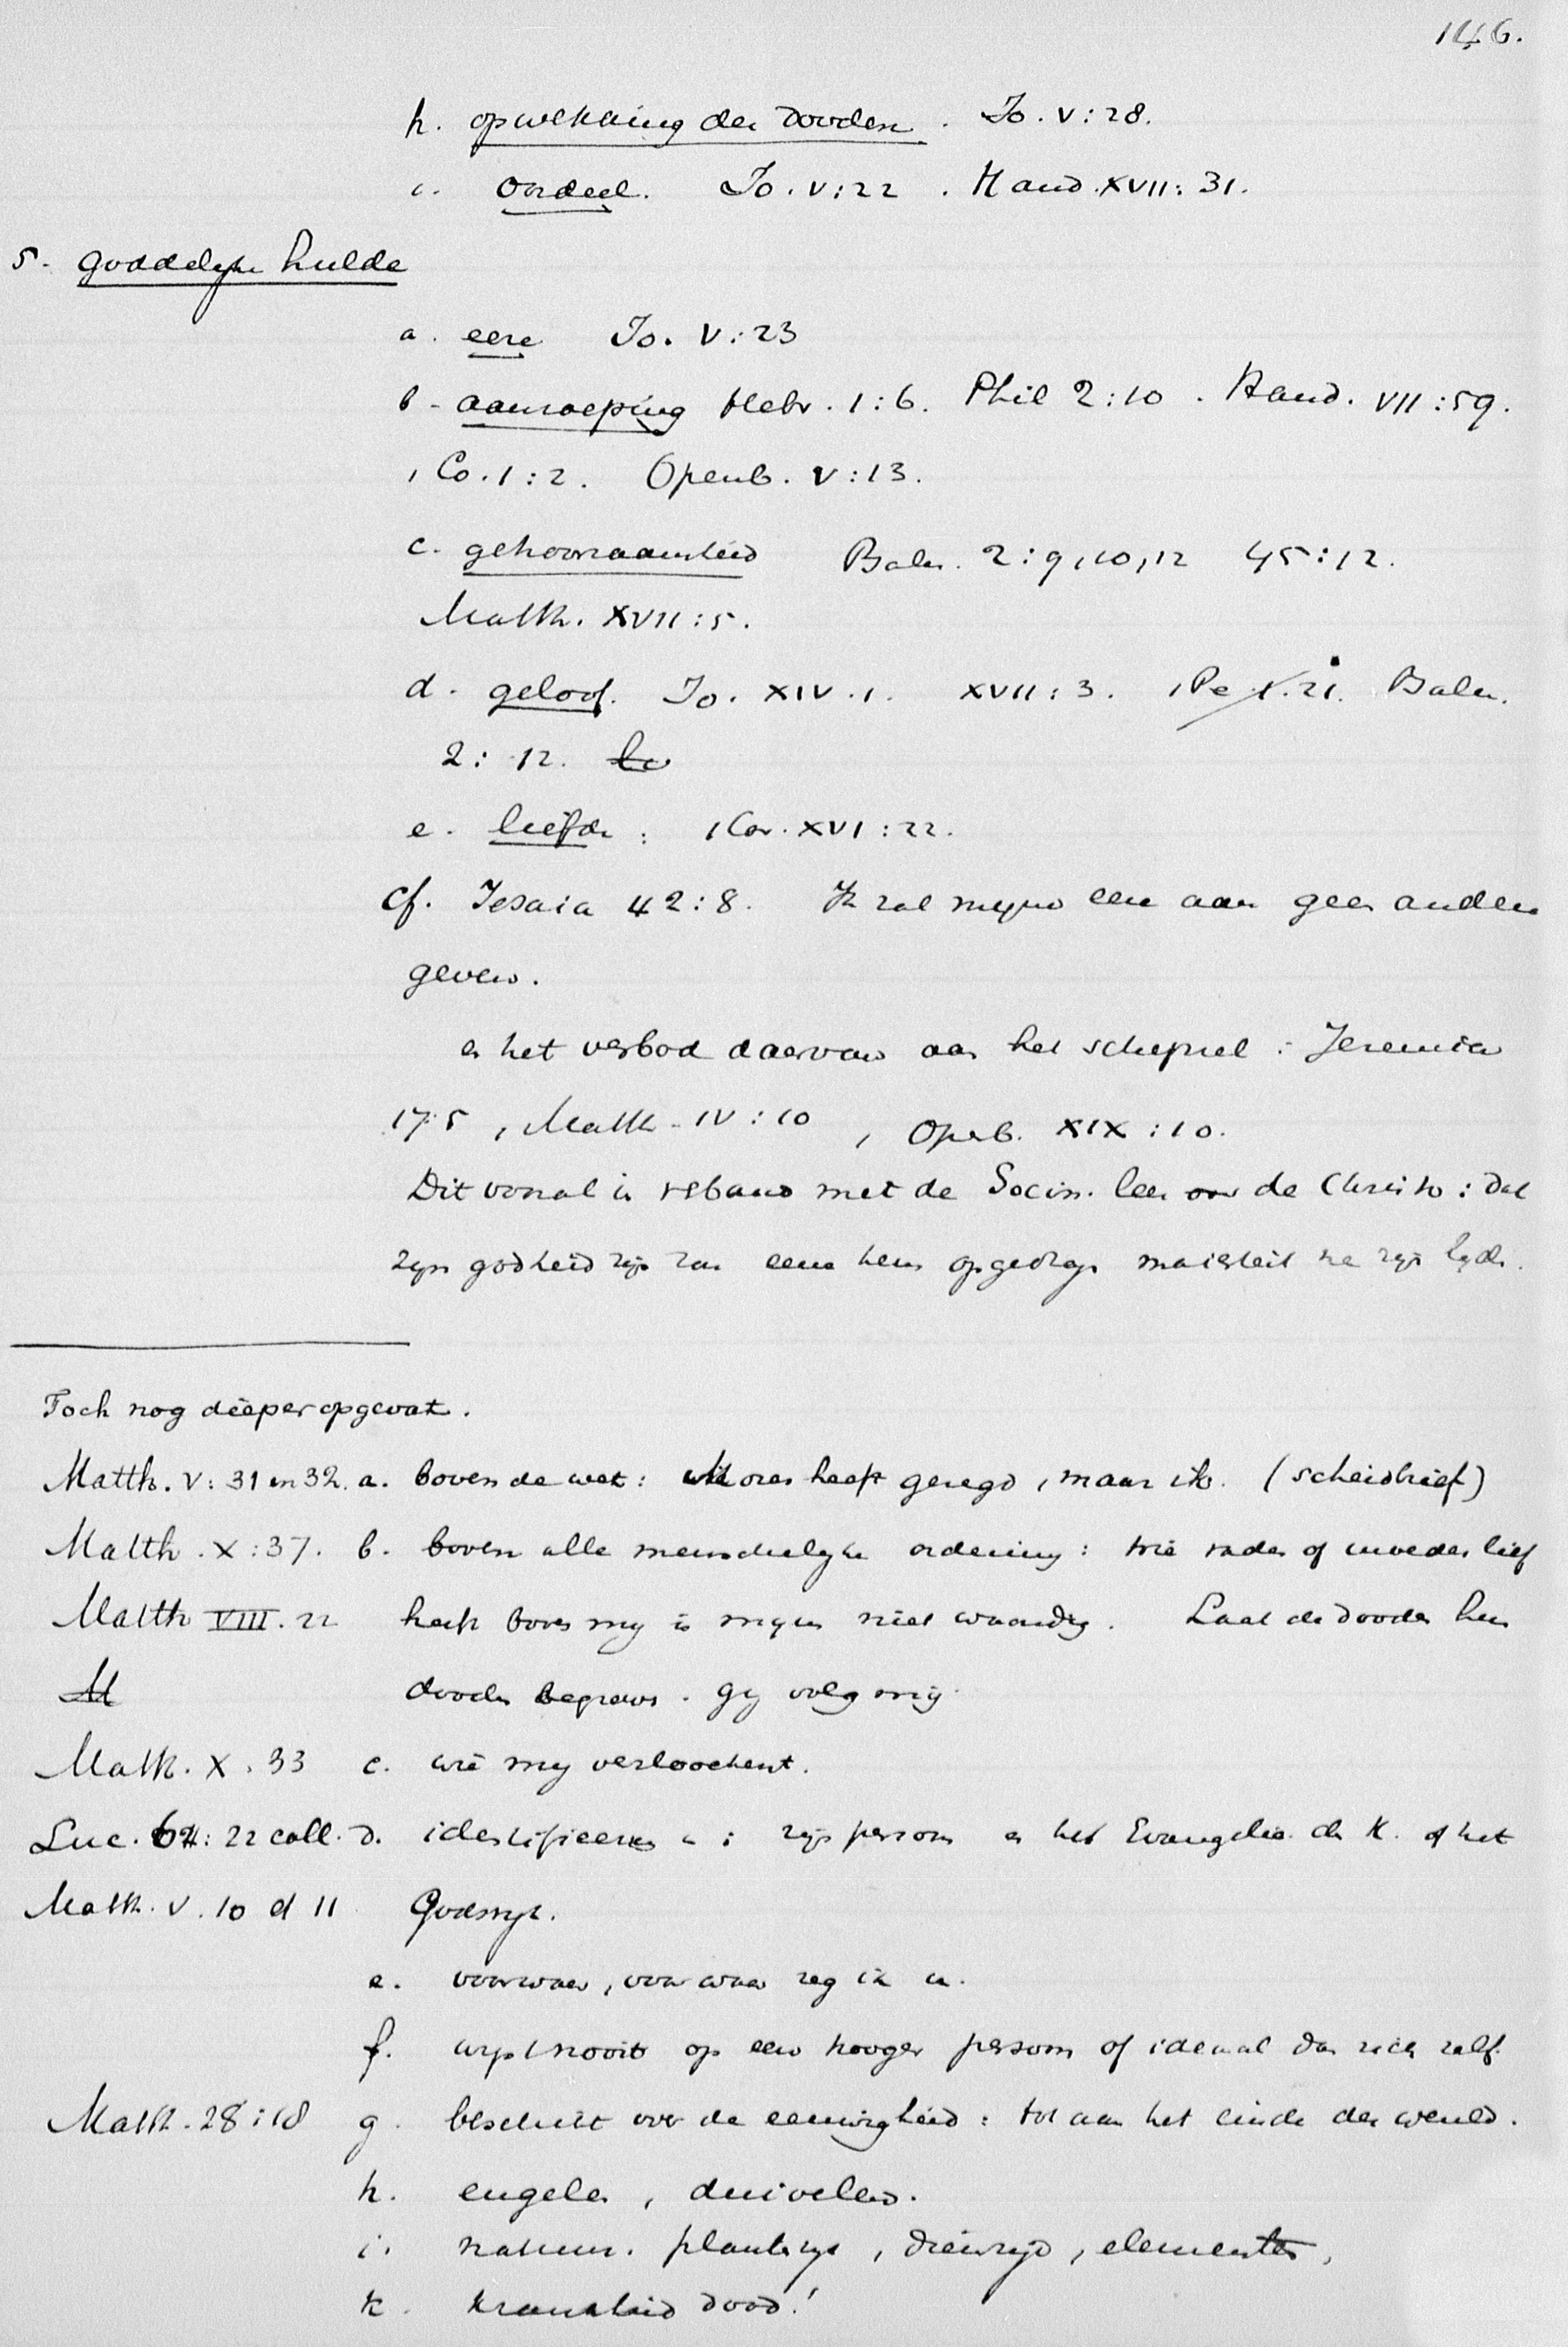 146.
h. opwekking der dooden. Jo. V:28.
i. oordeel. Jo. V:22. Hand. XVII: 31.
5. goddelyke hulde
a. eere Jo. V:23
b. aanroeping Hebr. 1:6. Phil 2:10. Hand. VII:59.
1 Co. 1:2. Openb. V:13.
c. gehoorzaamheid Psalm. 2:9,10,12 45:12.
Matth. XVII:5.
d. geloof. Jo. XIV.1. XVII:3. 1Pe 1.21. Psalm.
2: 12.
e. liefde: 1Cor. XVI:22.
Cf. Jesaia 42:8. Ik zal myne eere aan geen anderen
geven.
en het verbod daarvan aan het schepsel: Jeremia
17:5, Matth. IV:10, Openb. XIX:10.
Dit vooral in verband met de Socin. leer de Christo: dat
zyn godheid zijn zou eene hem opgedragen maiesteit na zijn lyden.
Toch nog dieper opgevat.
Matth. V: 31 en 32. a. boven de wet: Mozes heeft gezegd, maar ik. (scheidbrief)
Matth. X:37. b. boven alle menschelyke ordening: wie vader of moeder lief
Matth VIII. 22 heeft boven my is myns niet waardig. Laat de dooden hun
M dooden begraven. gy volg my.
Matth. X. 33 c. wie my verloochent.
Luc. 6: 22 coll. d. identificeeren: zijn persoon en het Evangelie. de K. of het
Matth. V. 10 et 11 Godsryk.
e. voorwaar, voorwaar zeg ik u.
f. wyst nooit op een hooger persoon of ideaal dan zich zelf.
Matth. 28:18 g. beschikt over de eeuwigheid: tot aan het einde der wereld.
h. engelen, duivelen.
i. natuur. plantenryk, dierryk, elementen,
k. krankheid dood!